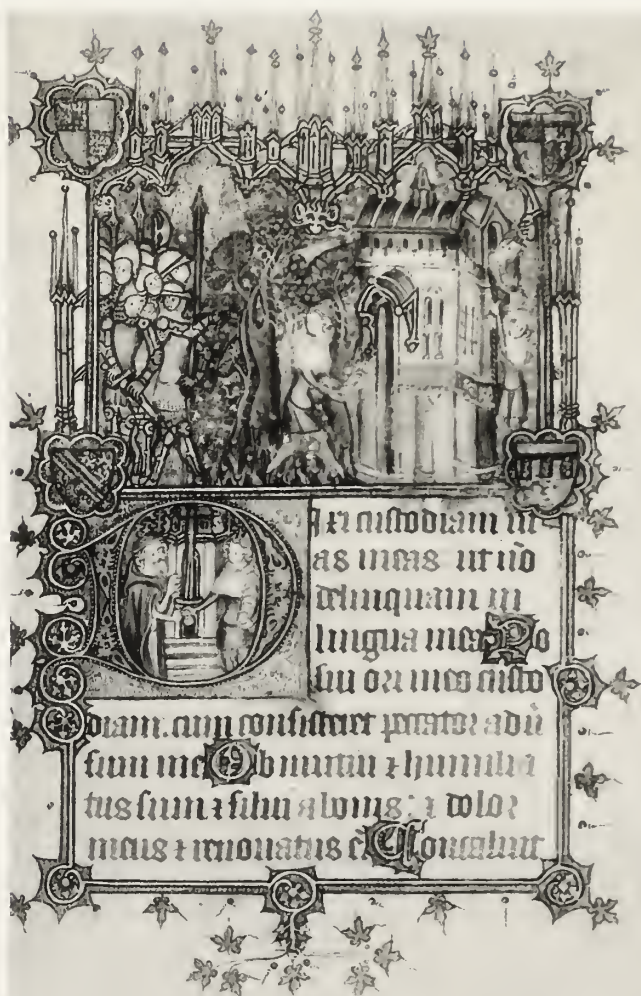 Dixi custodiam ui
as meas ut nō
delinquam in
lingua mea Po
sui ori meo custo
diam. cum consisteret peccator aduͥ
sum me Obmutui ⁊ humilia
tus sum ⁊ silui a bonis: ⁊ dolor
meus ⁊ renouatus ē Concaluit